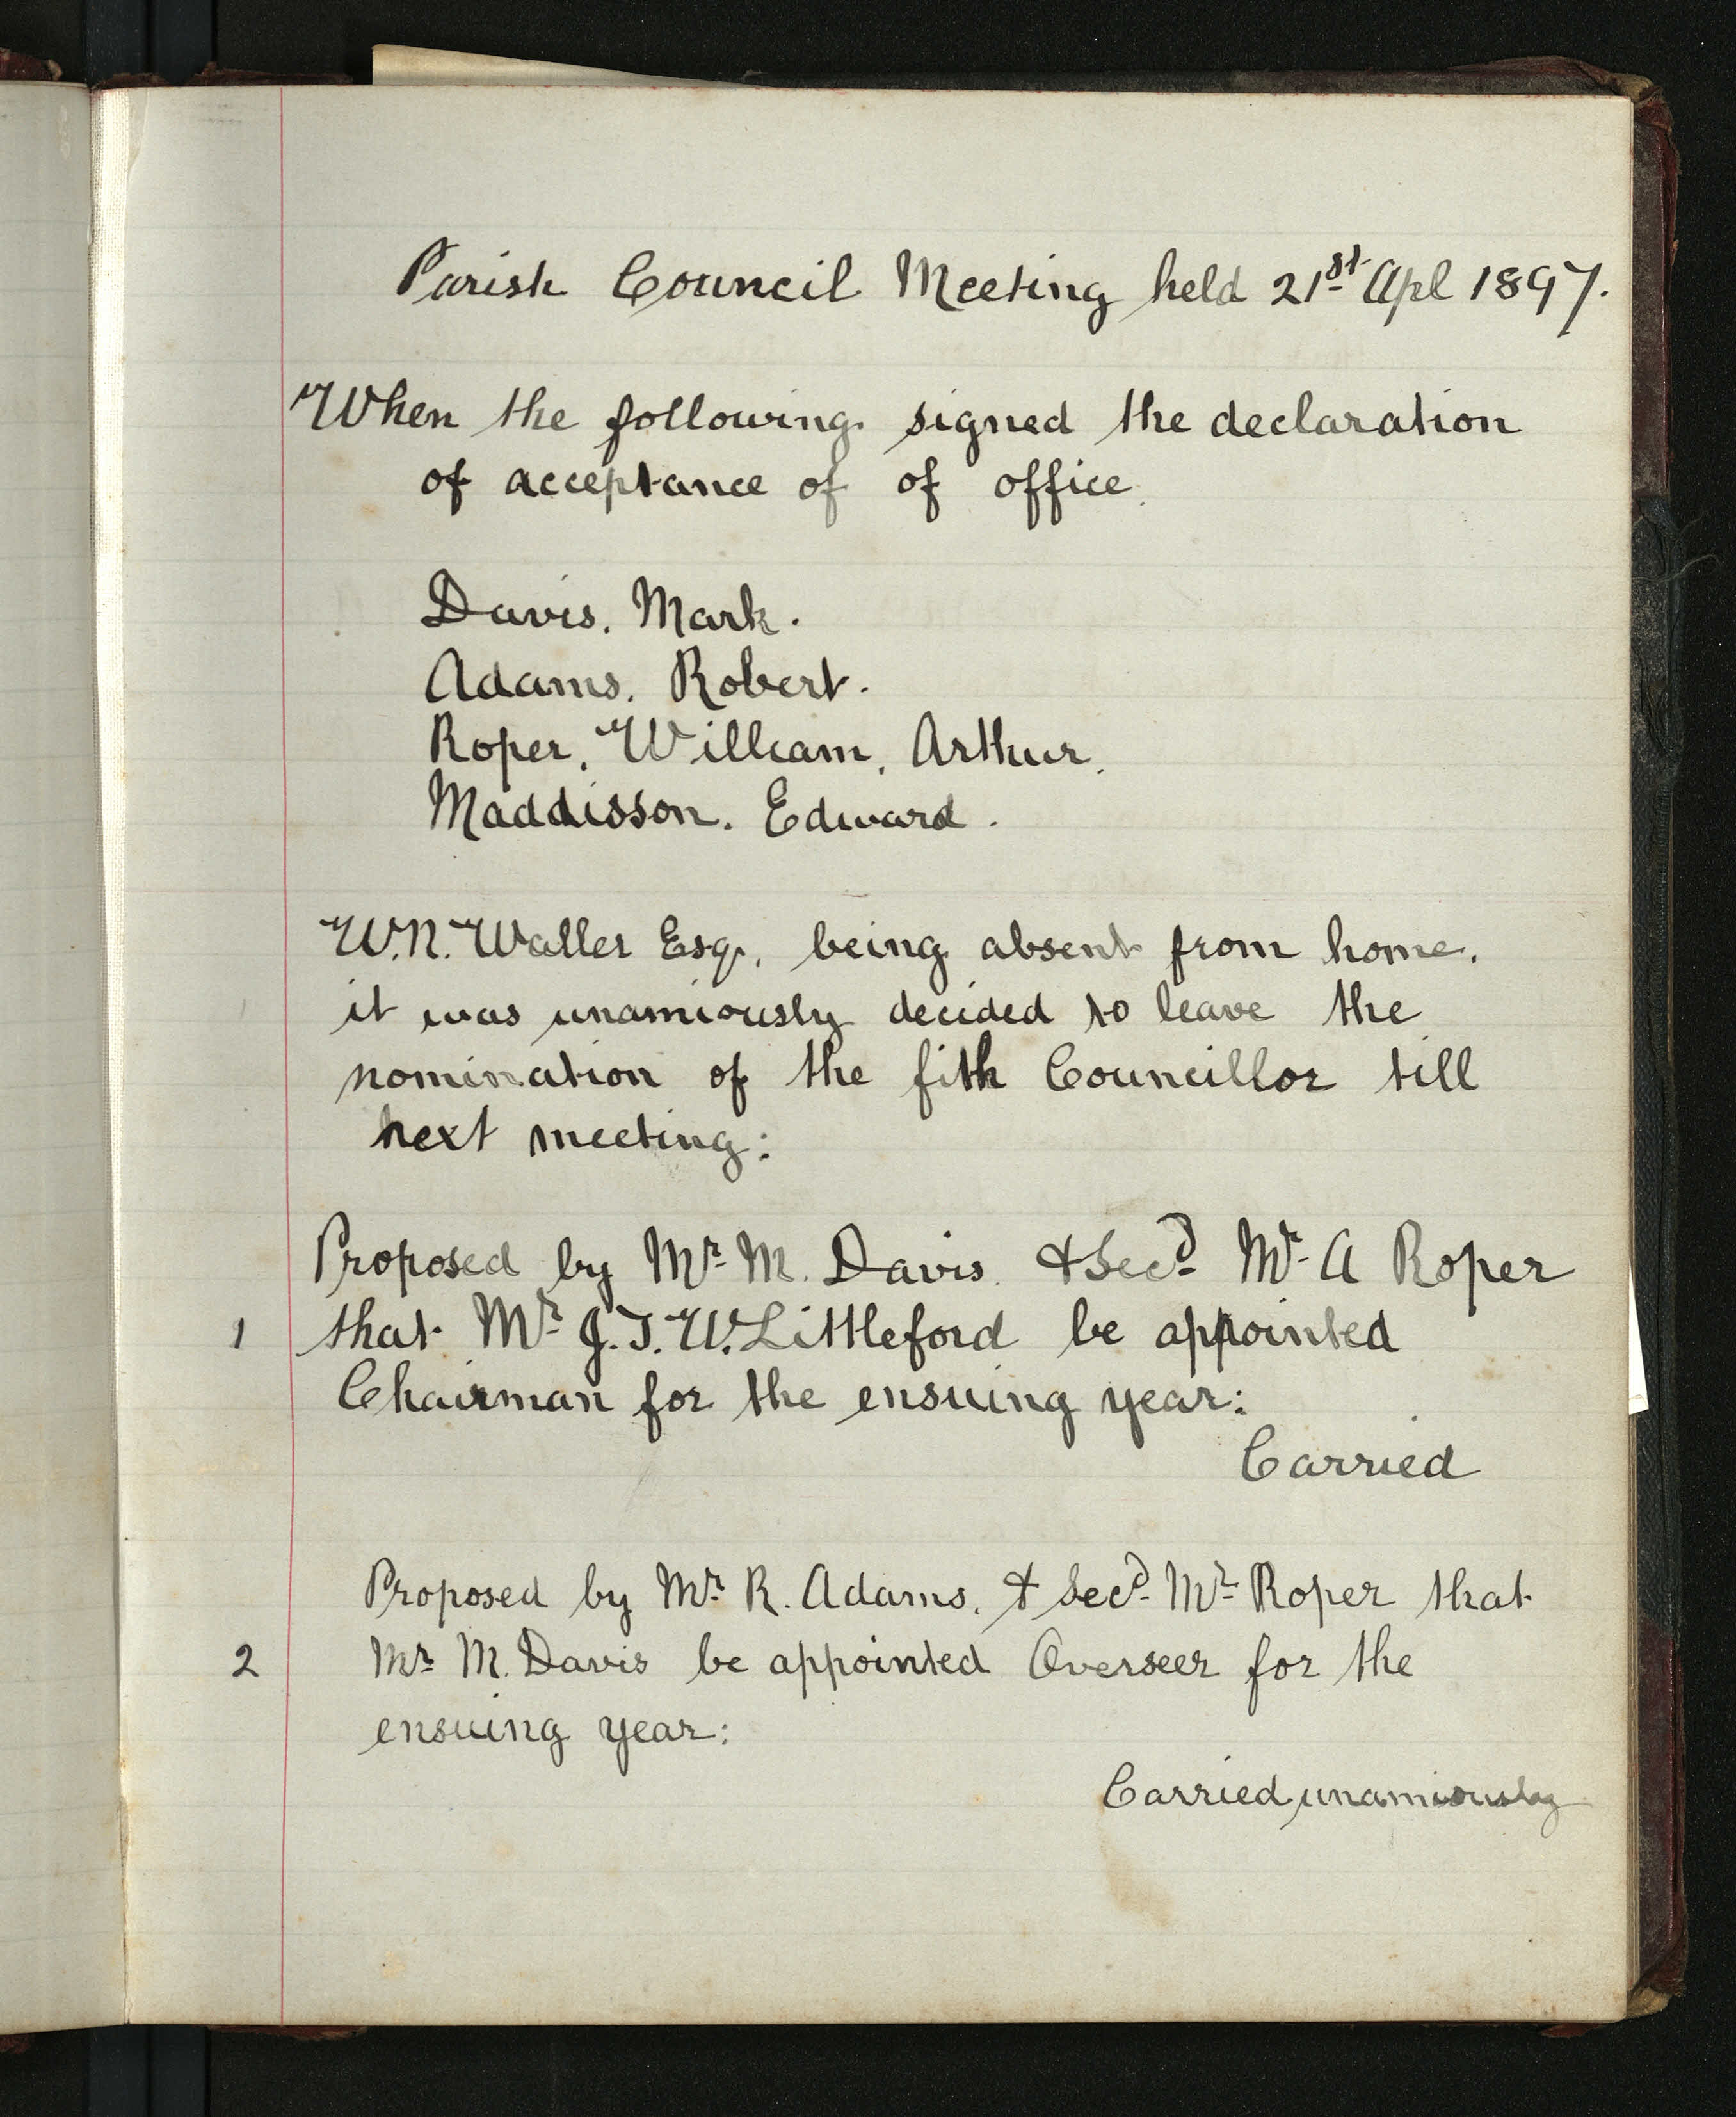 Parish Council Meeting held 21st Apl 1897.
When the following signed the declaration
of acceptance of of office.
Davis. Mark.
Adams. Robert.
Roper, William, Arthur.
Maddisson. Edward.
W.N. Waller Esq, being absent from home.
it was unamiously decided to leave the
nomination of the fith Councillor till
next meeting:
Proposed by Mr M. Davis. & Secd Mr A Roper
1 that Mr J.T.W. Littleford be appointed
Chairman for the ensuing year:
Carried
Proposed by Mr R. Adams, & Secd Mr Roper that
2 Mr M. Davis be appointed Overseer for the
ensuing year:
Carried unamiously